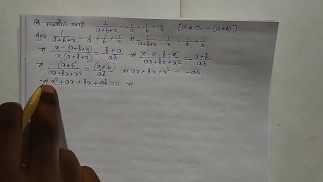 1/(a+b+x) = 1/a + 1/b + 1/x [x ≠ 0, -(a+b)]
1/(a+b+x) - 1/x = 1/a + 1/b
⇒ (x-(a+b+x))/(x(a+b+x)) = (b+a)/ab ⇒ (x-a-b-x)/(ax+bx+x²) = (a+b)/ab
⇒ -(a+b)/(ax+bx+x²) = (a+b)/ab ⇒ ax+bx+x² = -ab
⇒ x²+ax+bx+ab=0 ⇒